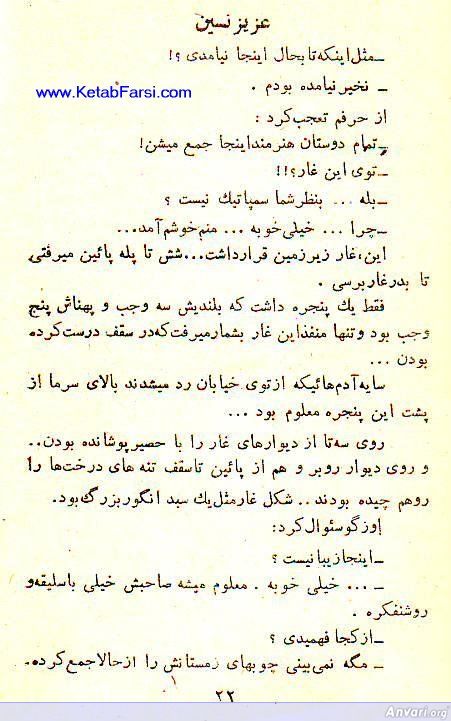 عزیز نسین
ـ مثل اینکه تا بحال اینجا نیامدی ؟!
www.KetabFarsi.com
ـ نخیر نیامده بودم .
از حرفم تعجب کرد :
ـ تمام دوستان هنرمند اینجا جمع میشن !
ـ توی این غار؟!!
ـ بله ... بنظر شما سمپاتیك نیست ؟
ـ چرا ... خیلی خوبه ... منم خوشم آمد...
این، غار زیر زمین قرار داشت... شش تا پله پائین میرفتی
تا بدر غار برسی .
فقط یك پنجره داشت که بلندیش سه وجب و پهناش پنج
وجب بود و تنها منفذ این غار بشمار میرفت که در سقف درست کرده
بودن ...
سایه آدم‌هائیکه از توی خیابان رد میشدند بالای سر ما از
پشت این پنجره معلوم بود ...
روی سه تا از دیوارهای غار را با حصیر پوشانده بودن..
و روی دیوار روبر و هم از پائین تا سقف تنه های درخت‌ها را
روهم چیده بودند .. شکل غار مثل یك سبد انگور بزرگ بود.
اوزگو سئوال کرد:
ـ اینجا زیبا نیست ؟
ـ ... خیلی خوبه . معلوم میشه صاحبش خیلی باسلیقه و
روشنفکره .
ـ از کجا فهمیدی ؟
ـ مگه نمی‌بینی چوبهای زمستانش را از حالا جمع کرده.
۲۲
Anvari.org